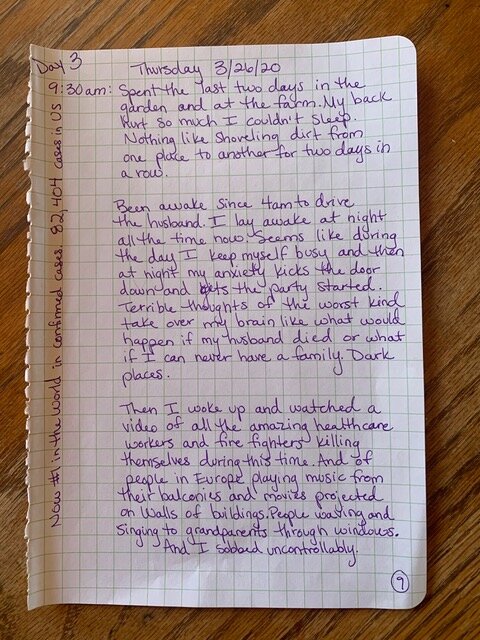 Day 3
Thursday 3/26/20
9:30am: Spent the last two days in the
garden and at the farm. My back
hurt so much I couldn't sleep.
Nothing like shoveling dirt from
one place to another for two days in
a row.
Been awake since 4am to drive
the husband. I lay awake at night
all the time now. Seems like during
the day I keep myself busy and then
at night my anxiety kicks the door
down and gets the party started.
Terrible thoughts of the worst kind
take over my brain like what would
happen if my husband died or what
if I can never have a family. Dark
places.
Then I woke up and watched a
video of all the amazing healthcare
workers and fire fighters killing
themselves during this time. And of
people in Europe playing music from
their balconies and movies projected
on walls of buildings. People waving and
singing to grandparents through windows.
And I sobbed uncontrollably.
9
Now #1 in the world in confirmed cases. 82,404 cases in US